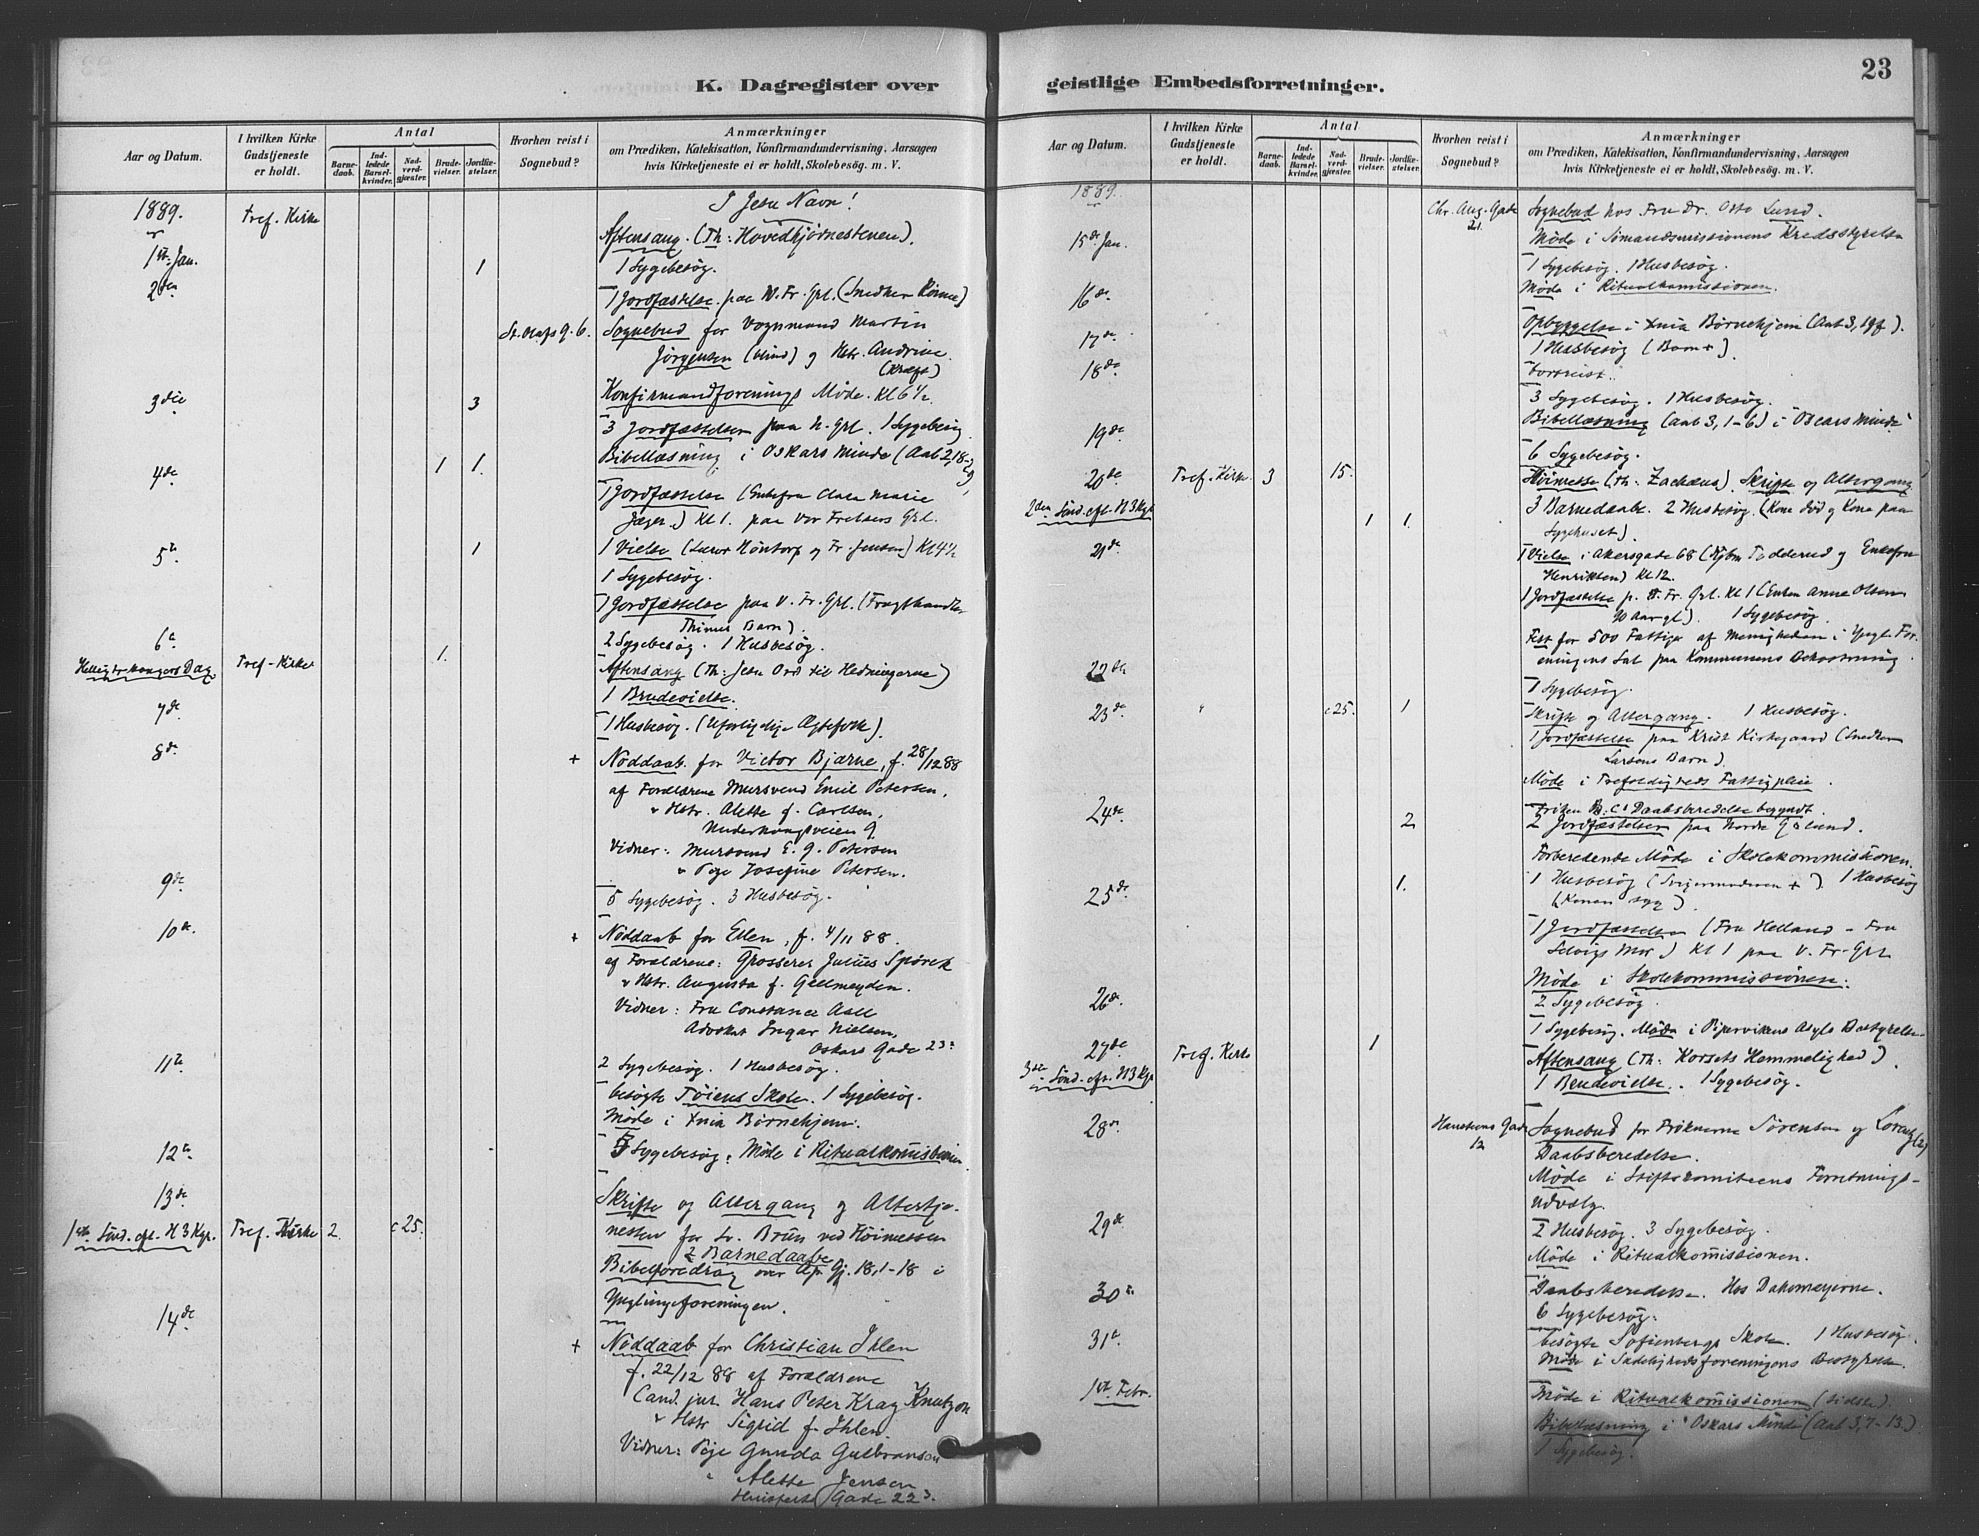 K. Dagregister over
Aar og Datum.
I hvilken Kirke
Gudstjeneste
er holdt.
Antal
Barne-
daab.
Ind-
ledede
Barsel-
kvinder.
Nad-
verd-
gjæster.
Brude-
vielser.
Jordfæ-
stelser.
Hvorhen reist i
Sognebud?
Anmærkninger
om Prædiken, Katekisation, Konfirmandundervisning, Aarsagen
hvis Kirketjeneste ei er holdt, Skolebesög. m. V.
1889.
I Jesu Navn!
1ste Jan.
Tref. Kirke
Aftensang. (Th: Hovedhjørnestenen).
1 Sygebesög.
2den
1
1 Jordfæstelse paa V. Fr. Grl. (Snedker)
St. Olafs g. 6.
Sognebud for Vognmand Martin
Jörgensen (blind) og Hstr. Andrine
(Kræft)
3die
3
Konfirmandforenings Møde. Kl 6½.
3 Jordfæstelser paa N. Grl. 1 Sygebesög.
Bibellæsning i Oskars Minde (Aab 2, 18-29)
4de
1
1.
1 Jordfæstelse (Enkefru Clara Marie
Jæger.) Kl 1. paa Vor Frelsers Grl.
1 Vielse (og Fr. Jensen) Kl 4½
1 Sygebesög.
5te
1
1 Jordfæstelse paa V. Fr. Grl. (Fragthandler
Barn).
2 Sygebesög. 1 Husbesög.
6te
Helligtrekongers Dag
Tref. Kirke
1.
Aftensang (Th: Jesu Ord til Hedningerne)
1 Brudevielse.
7de
1 Husbesög. (Uforligelige Ægtefolk).
8de
+
Nöddaab for Victor Bjarne, f. 28/12 88
af Forældrene Mursvend Emil Petersen,
" Hstr. Alette f. Carlsen,
Underhaugsveien 9.
Vidner: Mursvend E. G. Petersen
" Pige Josefine Petersen.
9de
5 Sygebesög. 3 Husbesög.
10de
+
Nöddaab for Ellen, f. 4/11 88.
af Forældrene: Grosserer Julius Spörck
" Hstr. Augusta f. Geelmeyden.
Vidner: Fru Constance Aall
Advokat Ingar Nielsen,
Oskars Gade 23
2 Sygebesög. 1 Husbesög.
11te
besögte Töiens Skole. 1 Sygebesög.
Møde i Xnia Børnehjem.
12te
5 Sygebesög. Møde i Ritualkommissionen
13de
1ste Sönd. eft. H 3 Kgr.
Tref. Kirke
2.
c 25.
Skrifte og Altergang og Altertje-
nesten for Br. Bruun ved Höimessen
2 Barnedaabe
Bibelforedrag over Ap. Gj. 18, 1-18 i
Ynglingeforeningen.
14de
+
Nöddaab for Christian Ihlen
f. 22/12 88 af Forældrene
Cand. jur. Hans Peter Krag Knutzon
" Hstr. Sigrid f. Ihlen
Vidner: Pige Gunda Gulbransen
" Alette Jensen
Gade 22
geistlige Embedsforretninger.
23
Aar og Datum.
I hvilken Kirke
Gudstjeneste
er holdt.
Antal
Barne-
daab.
Ind-
ledede
Barsel-
kvinder.
Nad-
verd-
gjæster.
Brude-
vielser.
Jordfæ-
stelser.
Hvorhen reist i
Sognebud?
Anmærkninger
om Prædiken, Katekisation, Konfirmandundervisning, Aarsagen
hvis Kirketjeneste ei er holdt, Skolebesög. m. V.
1889.
15de Jan.
Chr. Aug. Gade
21.
Sognebud hos Fru Dr. Otto Lund.
Møde i Sømandsmissionens Kredsstyrelse
1 Sygebesög. 1 Husbesög.
Møde i Ritualkommissionen.
16de
Opbyggelse i Xnia Børnehjem (Aab 3, 19f.).
1 Husbesög (Barn +).
17de
bortreist.
18de
3 Sygebesög. 1 Husbesög.
Bibellæsning (Aab 3, 1-6) i "Oscars Minde"
19de
6 Sygebesög.
20de
2den Sönd. eft. H 3 Kgr
Tref. Kirke.
3
15.
Höimesse (Th: Zachæus). Skrifte og Altergang
3 Barnedaabe. 2 Husbesög. (Kone död og Kone paa
Sygehuset).
21de
1
1.
1 Vielse i Akersgade 68 (Kjbm Todderud og Enkefru
Henriksen) Kl 12.
1 Jordfæstelse p. V. Fr. Grl. Kl 1 (Enken Anne Olsen
90 Aar gl). 1 Sygebesög.
Fest for 500 Fattige af Menigheden i Yngl. For-
eningens Sal paa Kommunens Bekostning
22de
1 Sygebesög.
23de
"
c 25.
1
Skrifte og Altergang. 1 Husbesög.
1 Jordfæstelse paa Krist Kirkegaard (Snedker
Larsens Barn).
Møde i Trefoldigheds Fattigpleie.
24de
2
Daabsberedelse begyndt.
2 Jordfæstelser paa Nordre Gr.lund.
Forberedende Møde i Skolekommissionen.
25de
1.
1 Husbesög (Svigermoderen +). 1 Husbesög
(Konen syg).
1 Jordfæstelse (Fru Helland - Fru
Selvigs Mor) Kl 1 paa V. Fr. Grl.
Møde i Skolekommissionen.
26de
2 Sygebesög.
1 Sygebesög. Møde i Pipervikens Asyls Bestyrelse
27de
3die Sönd. eft. H 3 Kgr
Tref. Kirke
1
Aftensang (Th: Korsets Hemmelighed).
1 Brudevielse. 1 Sygebesög.
28de
Hansteens Gade
12
Sognebud for Frøknerne Sörensen og
Daabsberedelse.
Møde i Stiftskomiteens Forretnings-
udvalg.
29de
2 Husbesög. 3 Sygebesög.
Møde i Ritualkommissionen.
30te
Daabsberedelse. Hos Dahomeyerne.
6 Sygebesög.
31te
besögte Sofienbergs Skole. 1 Husbesög.
Møde i Sædelighedsforeningens Bestyrelse.
1ste Febr.
Møde i Ritualkommissionen (sidste).
Bibellæsning i "Oskars Minde" (Aab 3, 7-13.)
1 Sygebesög.